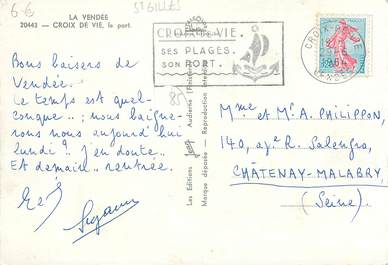 6-6
ST GILLES
LA VENDEE
20443 — CROIX DE VIE, le port.
Bons baisers de
Vendée.
Le temps est quel-
conque .. ; nous baigne-
rons nous aujourd'hui
lundi ? J'en doute ..
Et demain .. rentrée.
85
Les Editions
Marque déposée - Reproduction
CROIX-DE-VIE.
SES PLAGES.
SON PORT.
CROIX-DE-VIE
VENDEE
Mme et Mr A. PHILIPPON,
140, av. R. Salengro,
CHÂTENAY-MALABRY,
(Seine).